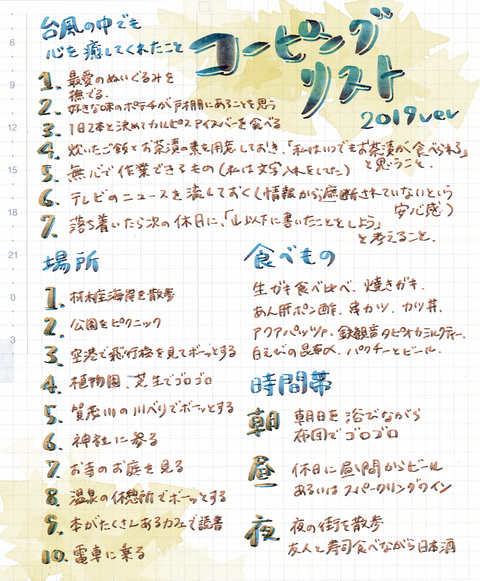 台風の中でも
心を癒してくれたこと
コーピングリスト
2019ver
1. 最愛のぬいぐるみを
撫でる.
2. 好きな味のポテチが戸棚にあることを思う
3. 1日2本と決めてカルピスアイスバーを食べる
4. 炊いたご飯とお茶漬の素を用意しておき、「私はいつでもお茶漬が食べられる」
と思うこと.
5. 無心で作業できるもの(私は文字入れをした)
6. テレビのニュースを流しておく(情報から断されていないという
安心感)
7. 落ち着いたら次の休日に、「山以下に書いたことをしよう」
と考えること.
場所
1. 材木座海岸を散歩
2. 公園をピクニック
3. 空港で飛行機を見てボーッとする
4. 植物園、芝生でゴロゴロ
5. 賀茂川の川べりでボーッとする
6. 神社に参る
7. お寺のお庭を見る
8. 温泉の休憩所でボーッとする
9. 本がたくさんあるカフェで読書
10. 電車に乗る
食べもの
生ガキ食べ比べ、焼きガキ.
あん肝ポン酢、串カツ、カツ丼、
アクアパッツァ、鉄観音タピオカミルクティー、
白えびの昆布〆、パクチーとビール.
時間帯
朝 朝日を浴びながら
布団でゴロゴロ
昼 休日に昼間からビール
あるいはスパークリングワイン
夜 夜の街を散歩
友人と寿司食べながら日本酒